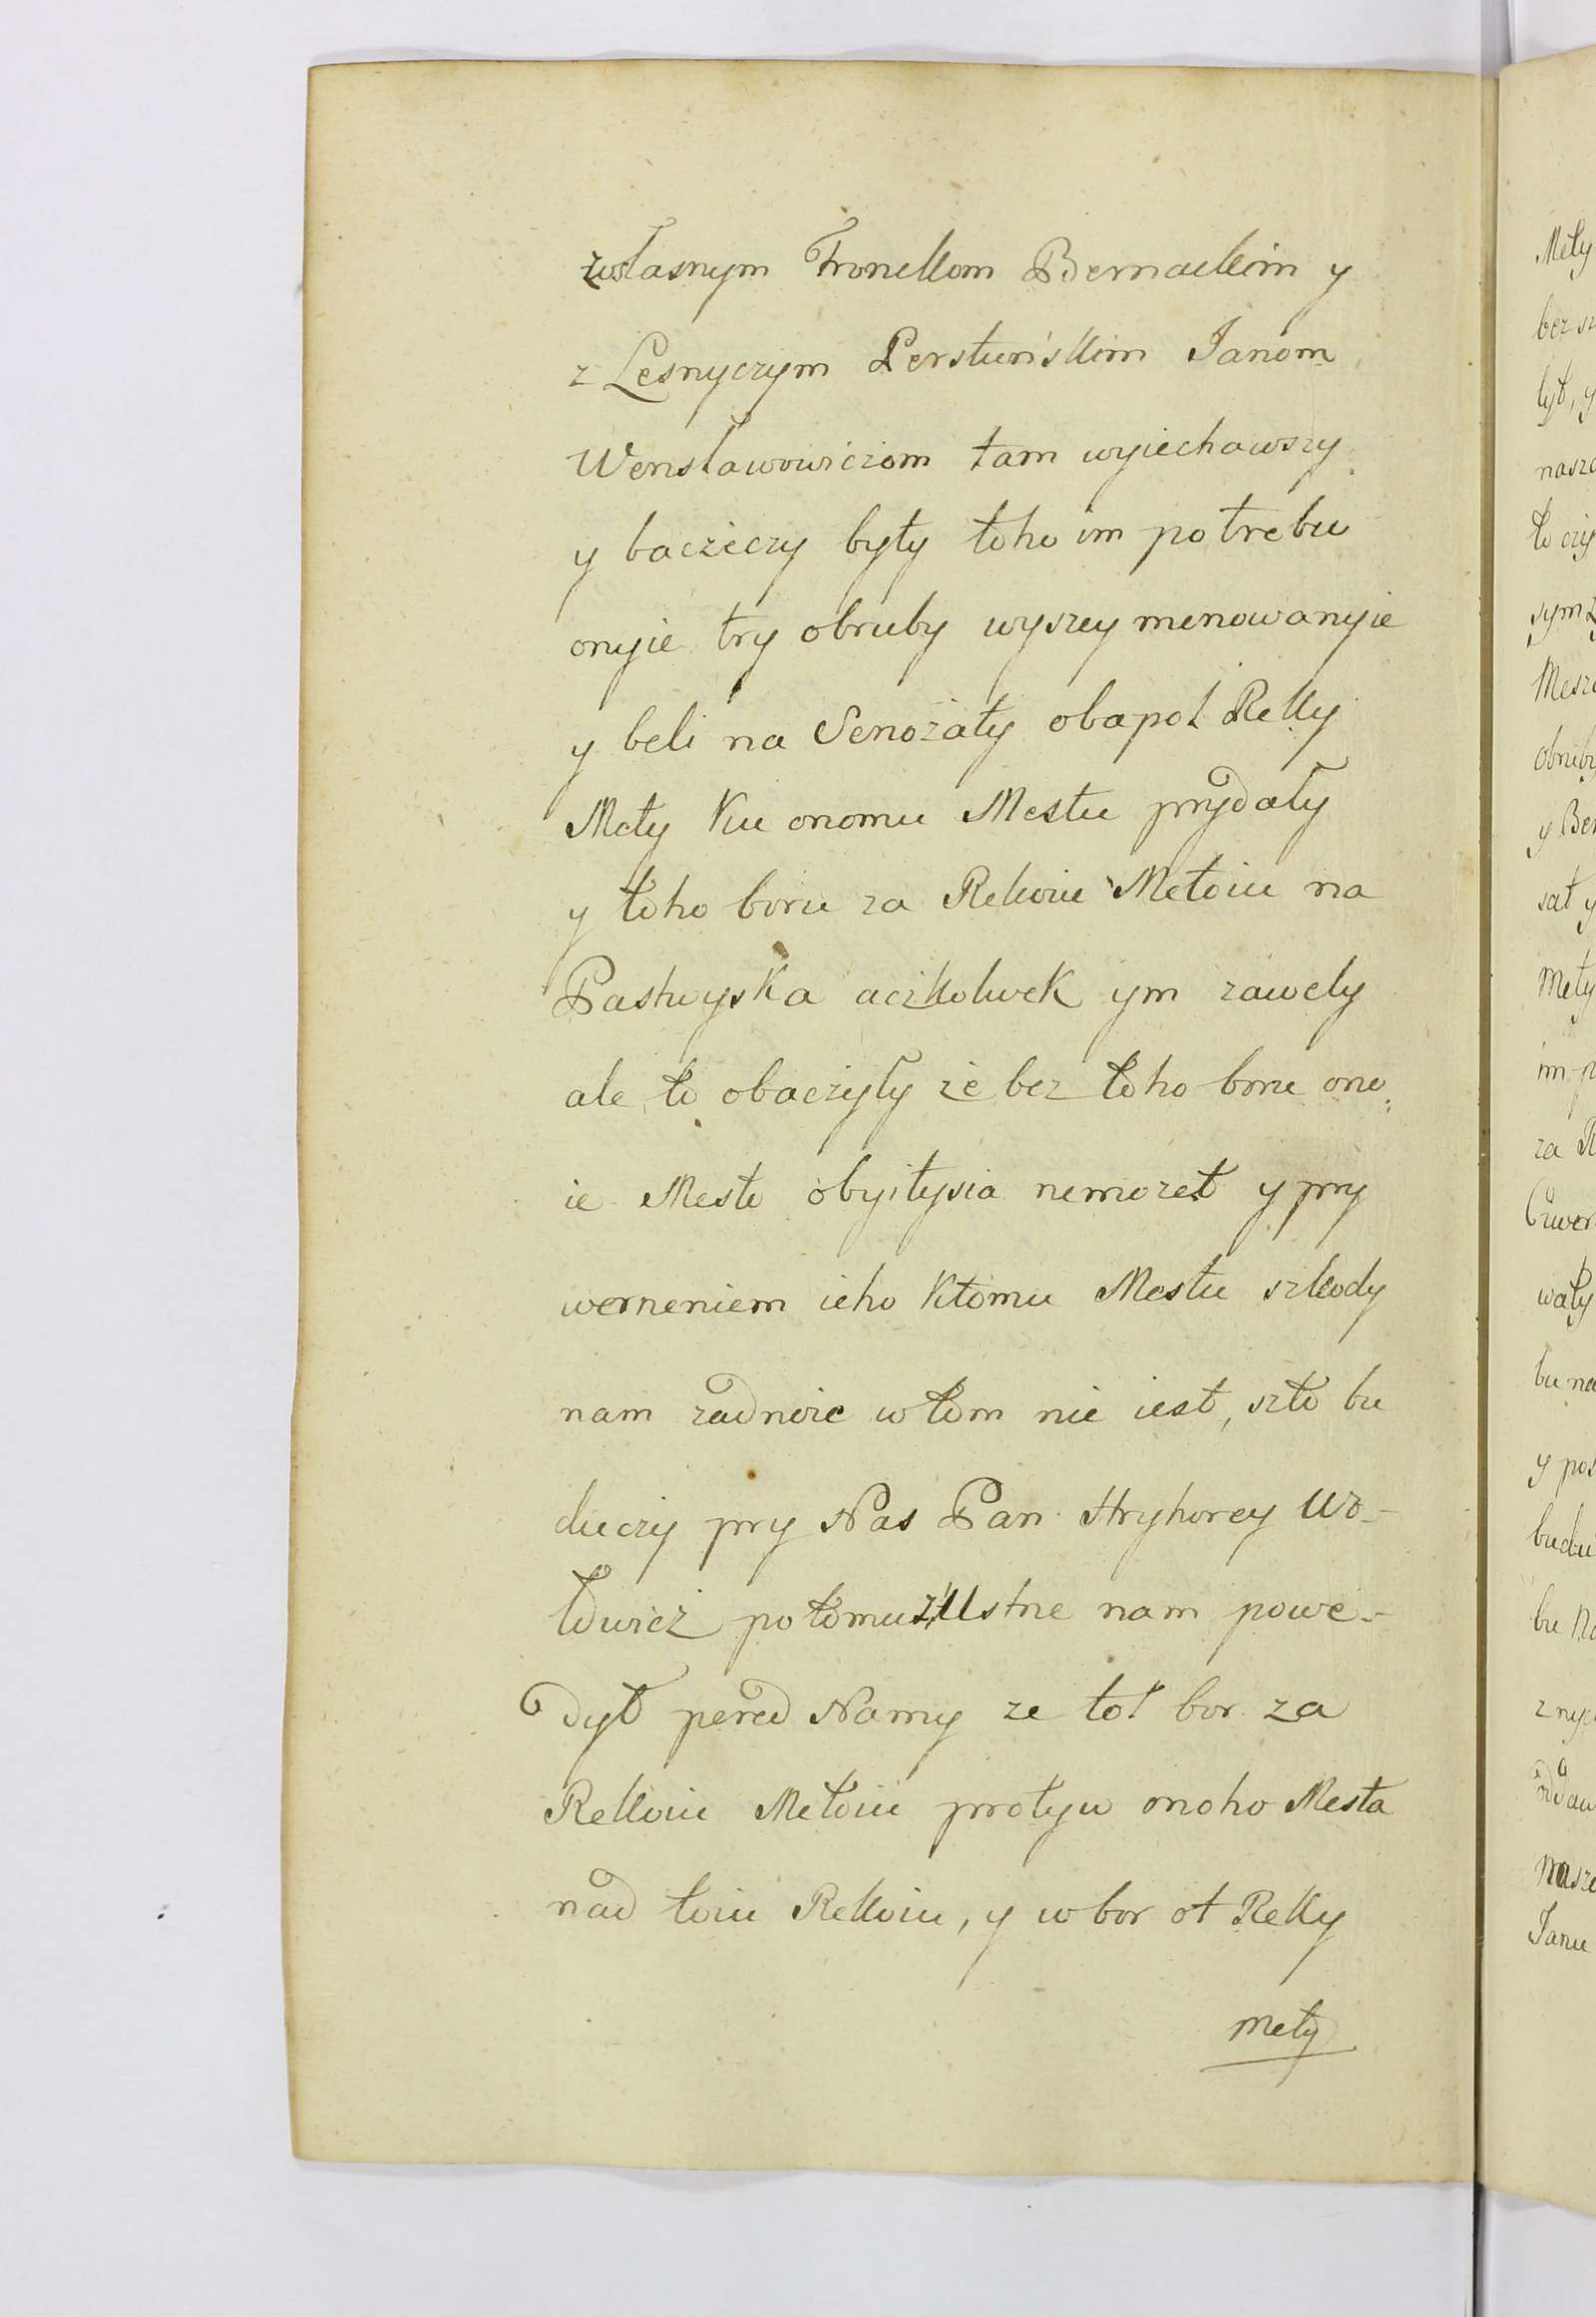 własnym Fronckom Bernackim y
z Lesnyczym Perstuńskim Janom
Wensławowiczom tam wyiechawszy
y baczeczy były toho im potrebu
onyie try obruby wyszey menowanyie
y beli na Senozaty obapol Rekky
Mety ku onomu Mestu prydały
y toho boru za Rekoiu Metoiu na
Pastwyska aczkolwek ym zawely
ale to obaczyły że bez toho boru ono
ie Mesto obyitysia nemozet y pry
werneniem ieho ktomu Mestu szkody
nam zadnoie wtom nie iest, szto bu
duczy pry Nas Pan Hryhorey Wo-
łowicz potomuż Ustne nam powe-
dył pered Namy ze tot bor za
Rekoiu Metoiu protyw onoho Mesta
nad toiu Rekoiu, y w bor ot Reky
mety
Mety
bez sz
był, y
naszo
to czy
sym z
Mesz
obruby
y Ber
sał y
Mety
im p
za R
wały
bu na
y pos
budu
bu Na
z nyc
nasze
Janu